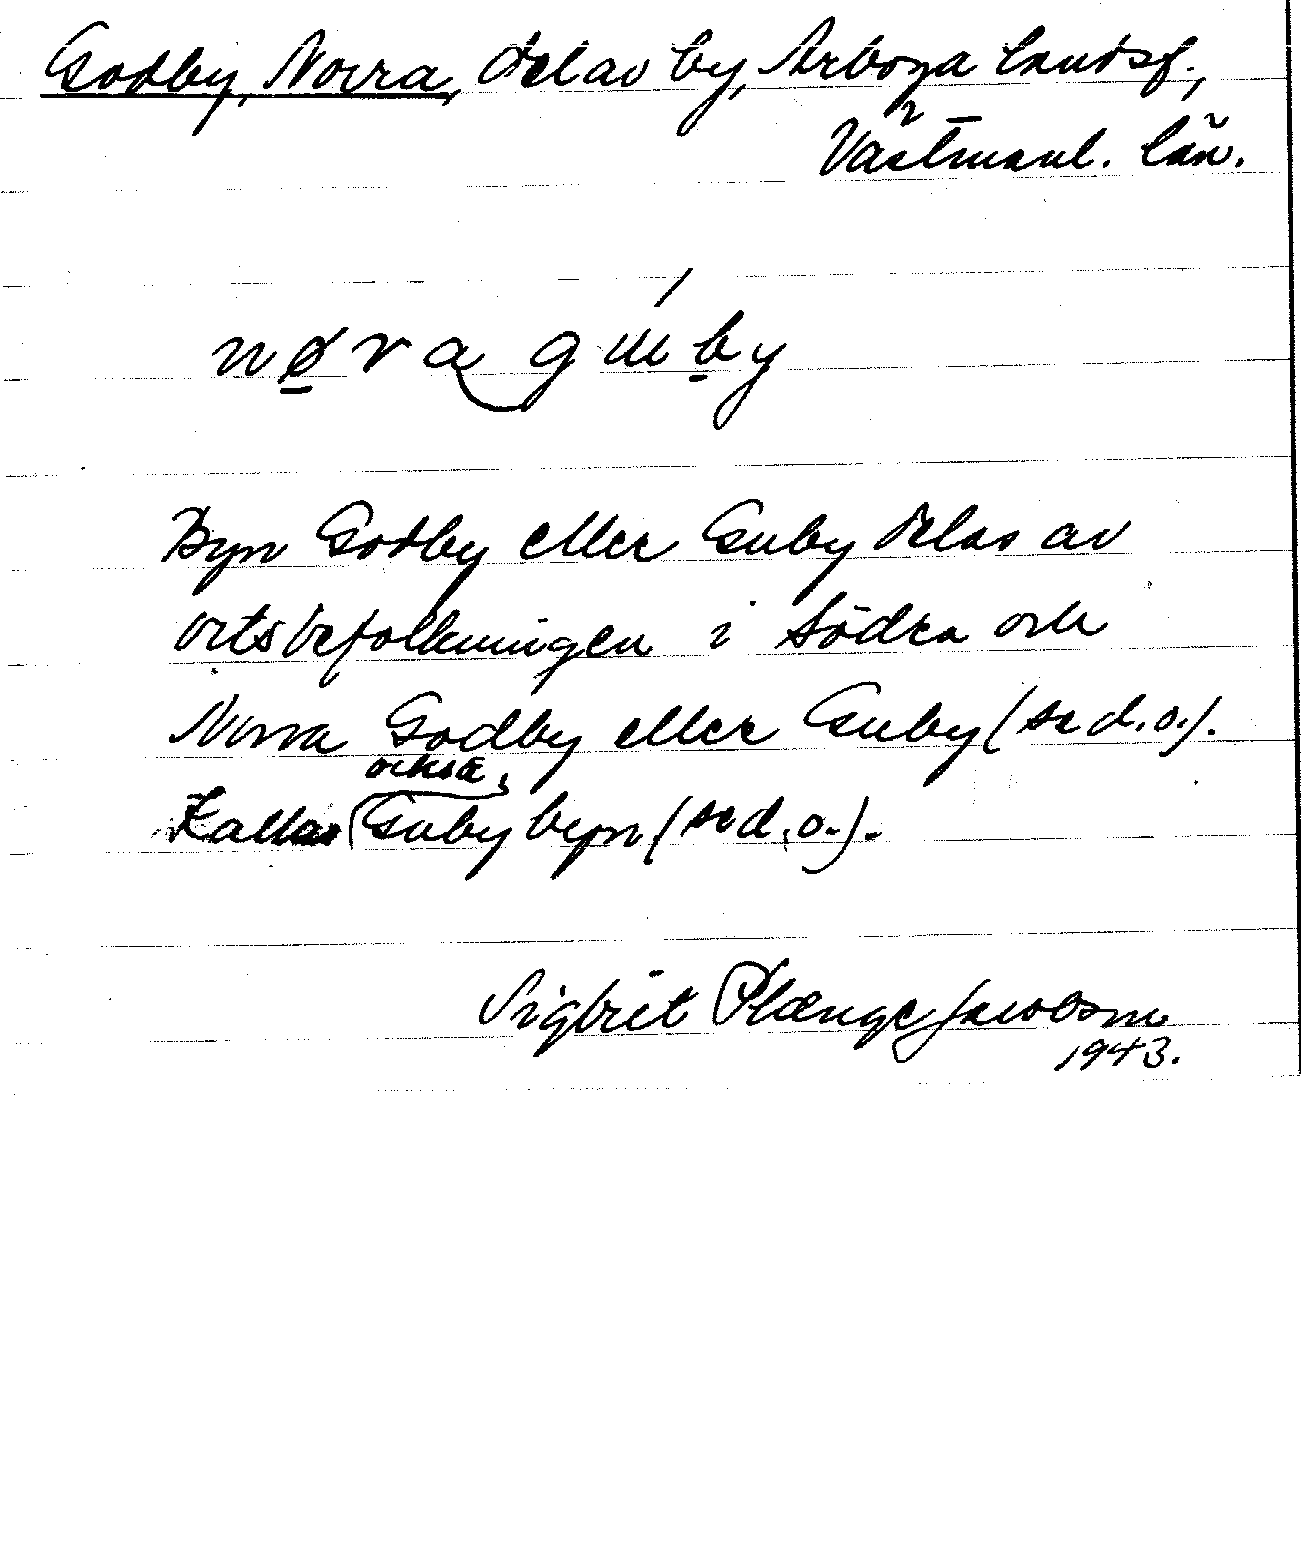 Godby, Norra, del av by, Arboga landsf.,
Västmanl. län.
Byn Godby eller Guby delas av
ortsbefolkningen i Södra och
Norra Godby eller Guby (se d.o.).
också
Kallas Gubybyn (se d.o.).
Sigbrit Plænge Jacobson
1943.